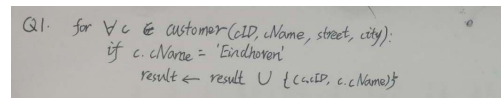 Q1. for ∀c ∈ customer(cID, cName, street, city):
if c.cName = 'Eindhoven'
result ← result ∪ {(c.cID, c.cName)}